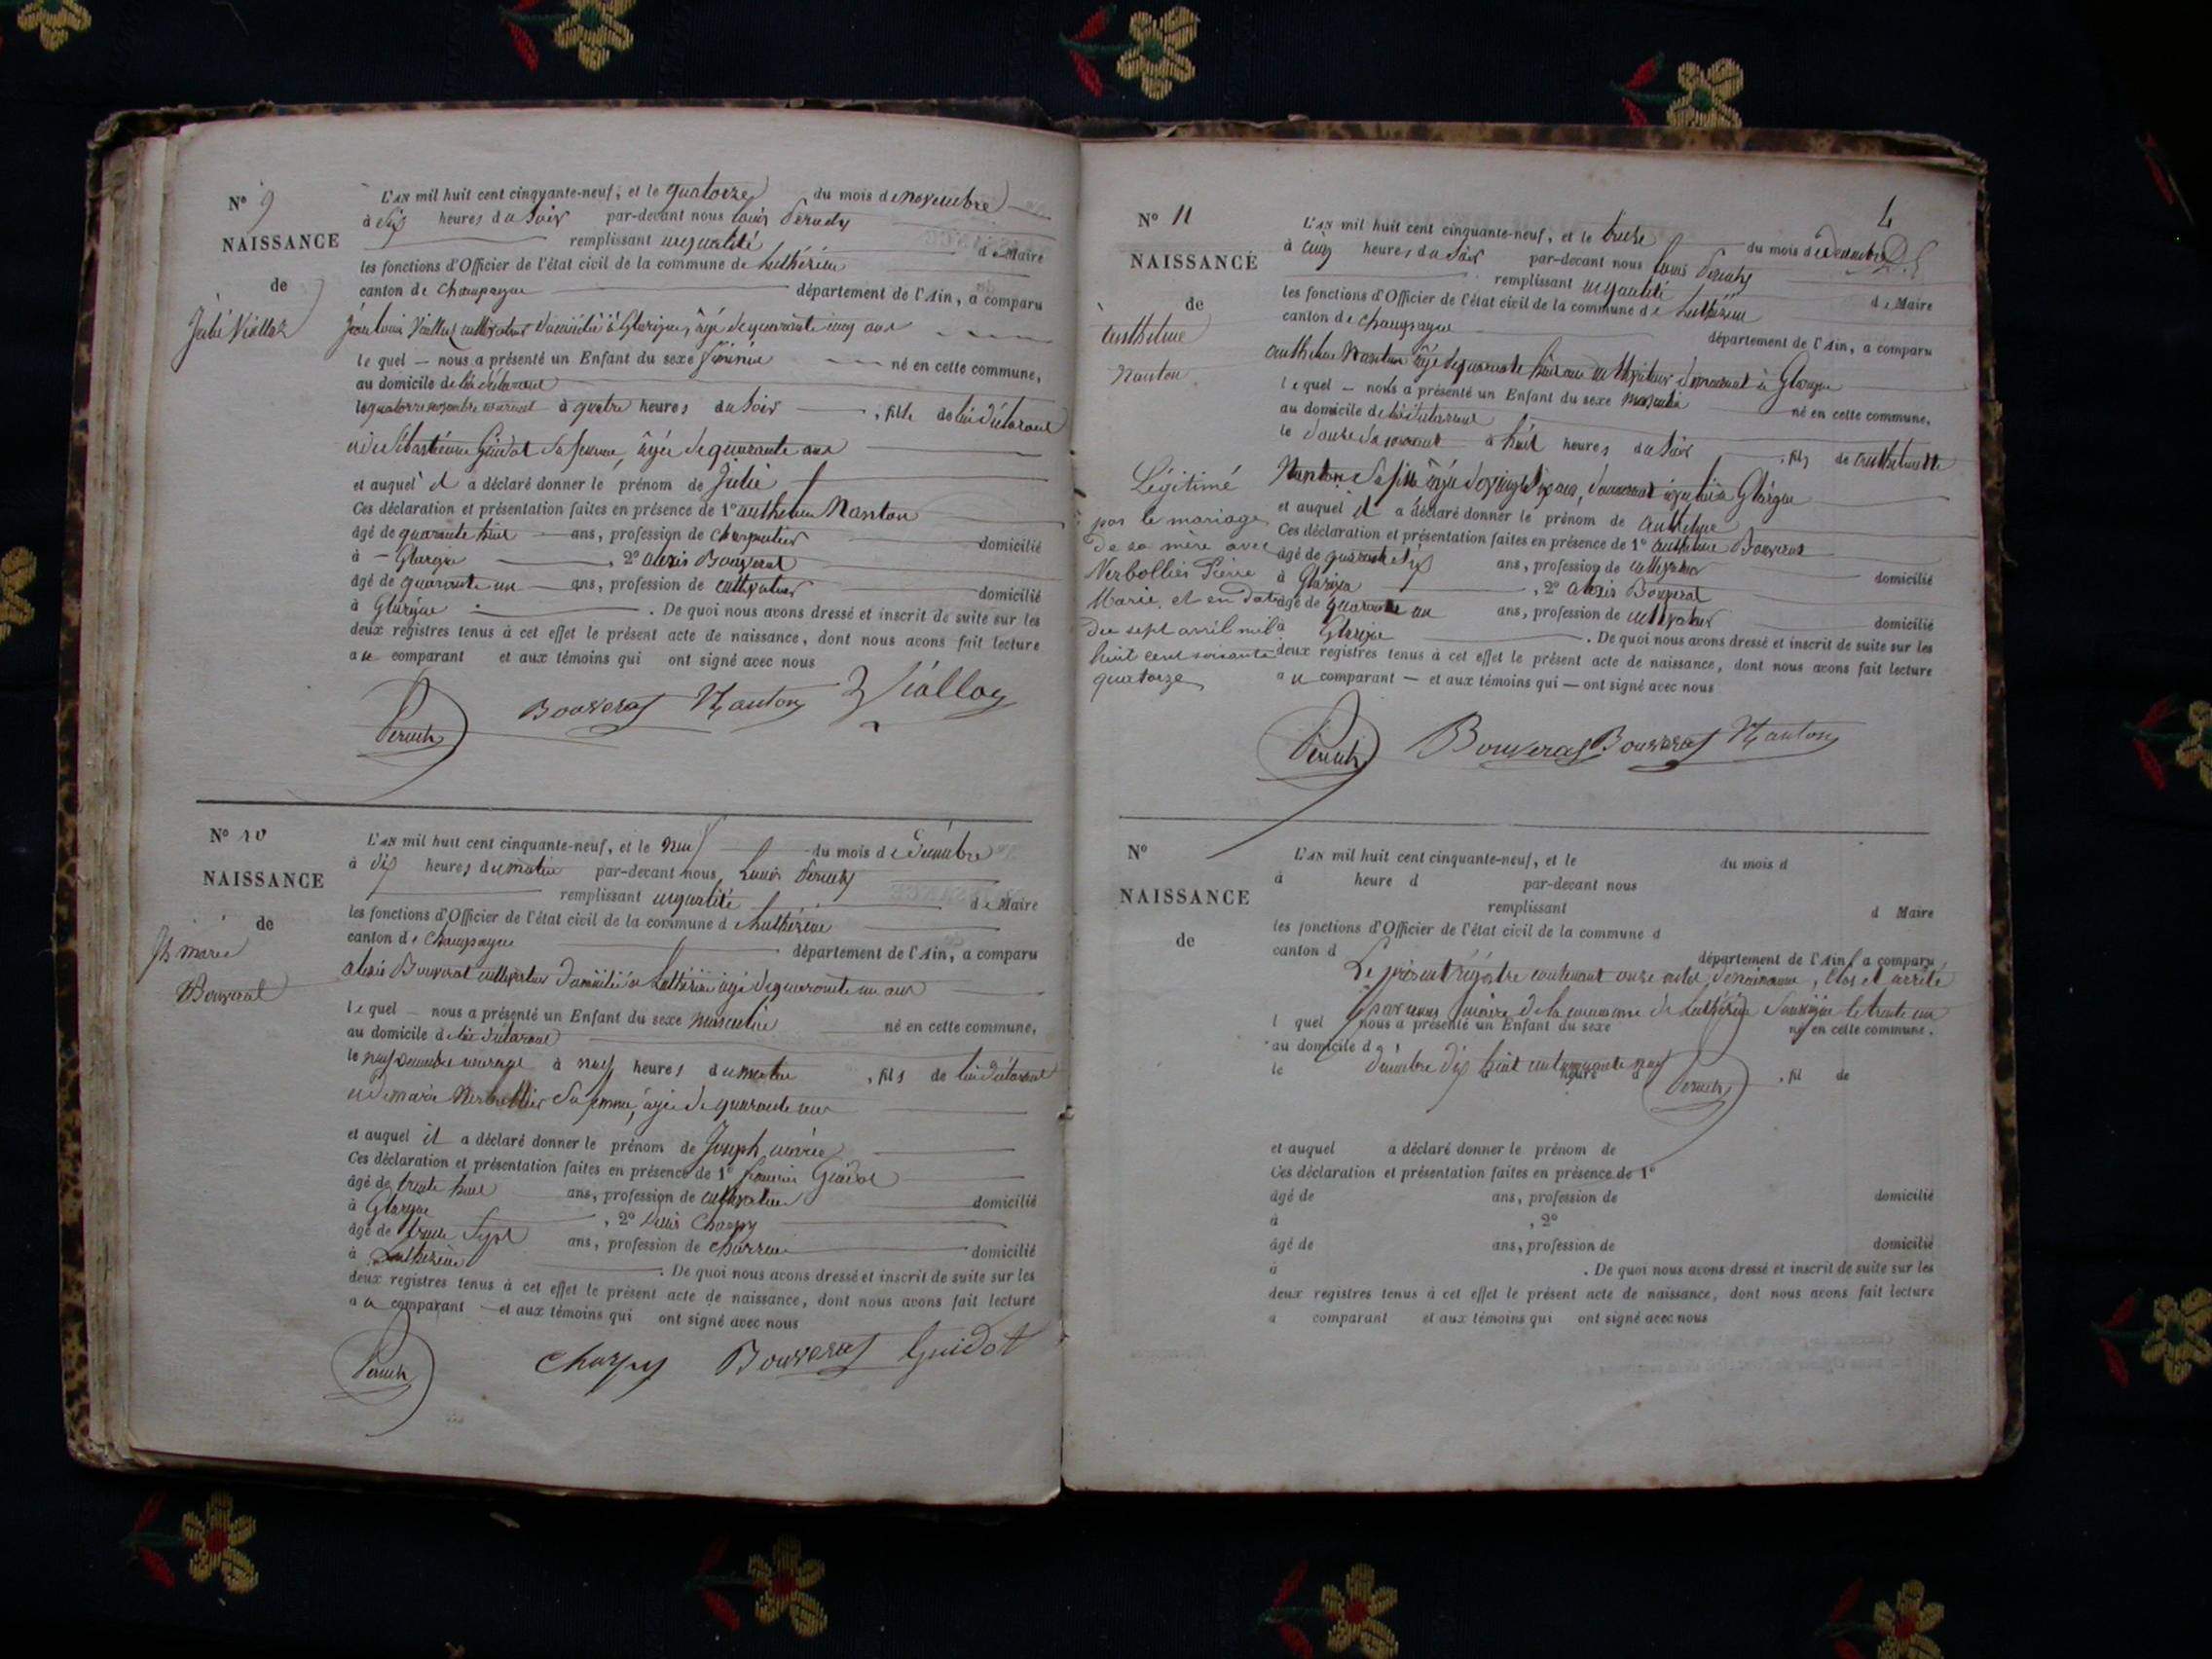 N° 9
NAISSANCE
de
Julie Viallaz
L'AN mil huit cent cinquante-neuf, et le quatorze du mois de novembre
à six heures du Soir par-devant nous Louis Peruch
remplissant en qualité de Maire
les fonctions d'Officier de l'état civil de la commune de Luthézieu
canton de Champagne département de l'Ain, a comparu
Jean Louis cultivateur domicilié à Glargin, âgé de quarante cinq ans
le quel nous a présenté un Enfant du sexe féminin né en cette commune,
au domicile de lui déclarant
le quatorze novembre courant à quatre heures du Soir, fille de lui déclarant
et de Sébastienne Guidot sa femme, âgée de quarante ans
et auquel il a déclaré donner le prénom de Julie
Ces déclaration et présentation faites en présence de 1° anthelme Nanton
âgé de quarante huit ans, profession de charpentier domicilié
à Glargin, 2° alexis Bouverat
âgé de quarante un ans, profession de cultivateur domicilié
à Glargin. De quoi nous avons dressé et inscrit de suite sur les
deux registres tenus à cet effet le présent acte de naissance, dont nous avons fait lecture
au comparant et aux témoins qui ont signé avec nous
Peruch Bouverat Nanton Viallaz
N° 10
NAISSANCE
de
Jh marie
Bouverat
L'AN mil huit cent cinquante-neuf, et le neuf du mois de Décembre
à dix heures du matin par-devant nous Louis Peruch
remplissant en qualité de Maire
les fonctions d'Officier de l'état civil de la commune de Luthézieu
canton de Champagne département de l'Ain, a comparu
alexis Bouverat cultivateur domicilié à Luthézieu âgé de quarante un ans
le quel nous a présenté un Enfant du sexe masculin né en cette commune,
au domicile de lui déclarant
le neuf décembre à neuf heures du matin, fils de lui déclarant
et de marie Verbollier sa femme, âgée de quarante
et auquel il a déclaré donner le prénom de Joseph marie
Ces déclaration et présentation faites en présence de 1° Guidot
âgé de trente huit ans, profession de cultivateur domicilié
à Glargin, 2° Charpy
âgé de trente Sept ans, profession de domicilié
à Luthézieu. De quoi nous avons dressé et inscrit de suite sur les
deux registres tenus à cet effet le présent acte de naissance, dont nous avons fait lecture
au comparant et aux témoins qui ont signé avec nous
Peruch Charpy Bouverat Guidot
4
N° 11
NAISSANCE
de
anthelme
Nanton
L'AN mil huit cent cinquante-neuf, et le treize du mois de décembre
à cinq heures du Soir par-devant nous Louis Peruch
remplissant en qualité de Maire
les fonctions d'Officier de l'état civil de la commune de Luthézieu
canton de Champagne département de l'Ain, a comparu
anthelme Nanton âgé de quarante huit ans cultivateur demeurant à Glargin
le quel nous a présenté un Enfant du sexe masculin né en cette commune,
au domicile de lui déclarant
le douze du courant à huit heures du Soir, fils de anthelmette
Nanton Sa fille âgée de vingt six ans, demeurant avec lui à Glargin
et auquel il a déclaré donner le prénom de anthelme
Ces déclaration et présentation faites en présence de 1° anthelme Bouverat
âgé de quarante six ans, profession de cultivateur domicilié
à Glargin, 2° alexis Bouverat
âgé de quarante un ans, profession de cultivateur domicilié
à Glargin. De quoi nous avons dressé et inscrit de suite sur les
deux registres tenus à cet effet le présent acte de naissance, dont nous avons fait lecture
au comparant et aux témoins qui ont signé avec nous
Légitimé
par le mariage
de sa mère avec
Verbollier Pierre
Marie, et en date
du sept avril mil
huit cent soixante
quatorze
Peruch Bouverat Bouverat Nanton
N°
NAISSANCE
de
L'AN mil huit cent cinquante-neuf, et le du mois d
à heure d par-devant nous
remplissant d Maire
les fonctions d'Officier de l'état civil de la commune d
canton d département de l'Ain, a comparu
Le présent régistre contenant onze actes de naissance, Clos et arrêté
par nous maire de la commune de Luthézieu Soussigné le trente un
l quel nous a présenté un Enfant du sexe né en cette commune.
au domicile d
décembre dix huit cent cinquante neuf
le à heure d , fil de
Peruch
et auquel a déclaré donner le prénom de
Ces déclaration et présentation faites en présence de 1°
âgé de ans, profession de domicilié
à , 2°
âgé de ans, profession de domicilié
à . De quoi nous avons dressé et inscrit de suite sur les
deux registres tenus à cet effet le présent acte de naissance, dont nous avons fait lecture
a comparant et aux témoins qui ont signé avec nous